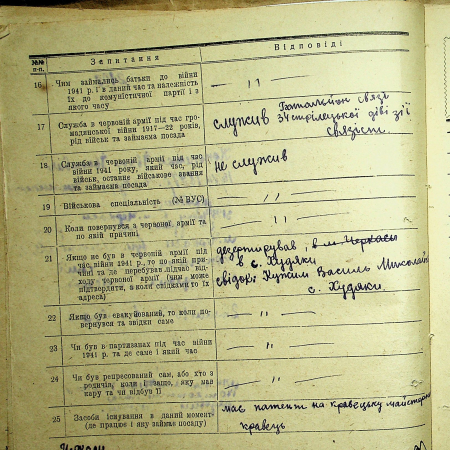 №№ п-п.
Запитання
Відповіді
16
Чим займались батьки до війни
1941 р. і в даний час та належність
їх до комуністичної партії і з
якого часу
— " —
17
Служба в червоній армії під час гро-
мадянської війни 1917—22 років,
рід військ та займаєма посада
служив батальйон связь
34 стрілецької діві зії
связіст.
18
Служба в червоній армії під час
війни 1941 року, який час, рід
військ, останнє військове звання
та займаєма посада
не служив
19
Військова спеціальність (№ ВУС)
— " —
20
Коли повернувся з червоної армії та
по якій причині
— " —
21
Якщо не був в червоній армії під
час війни 1941 р., то по якій при-
чині та де перебував підчас від-
ходу червоної армії (чим може
підтвердити, в коли свідками то їх
адреса)
дезертирував, в м. Черкаси
в с. Худяки
свідокі Кужим Василь Миколай
с. Худяки.
22
Якщо був евакуйований, то коли по-
вернувся та звідки саме
— " —
23
Чи був в партизанах під час війни
1941 р. та де саме і який час
— " —
24
Чи був репресований сам, або хто з
родичів, коли і защо, яку мав
кару та чи відбув її
— " —
25
Засоби існування в даний момент
(де працює і яку займає посаду)
має патент на кравецьку майстерню
кравець